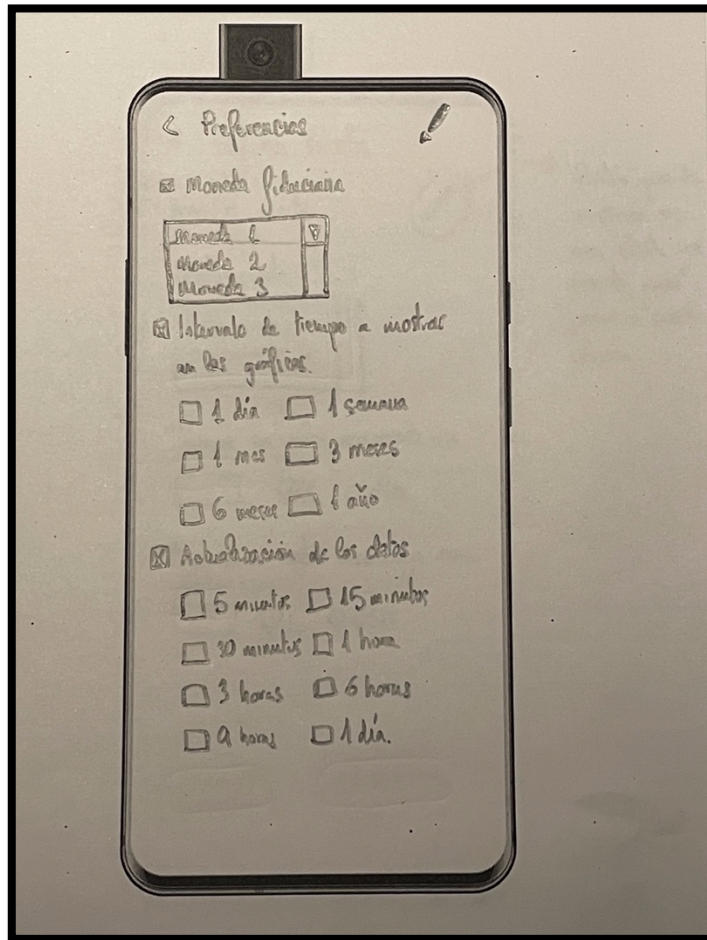 < Preferencias
Moneda fiduciaria
Moneda 1
Moneda 2
Moneda 3
Intervalo de tiempo a mostrar
en las gráficas.
1 día 1 semana
1 mes 3 meses
6 meses 1 año
Actualización de los datos
5 minutos 15 minutos
30 minutos 1 hora
3 horas 6 horas
9 horas 1 día.